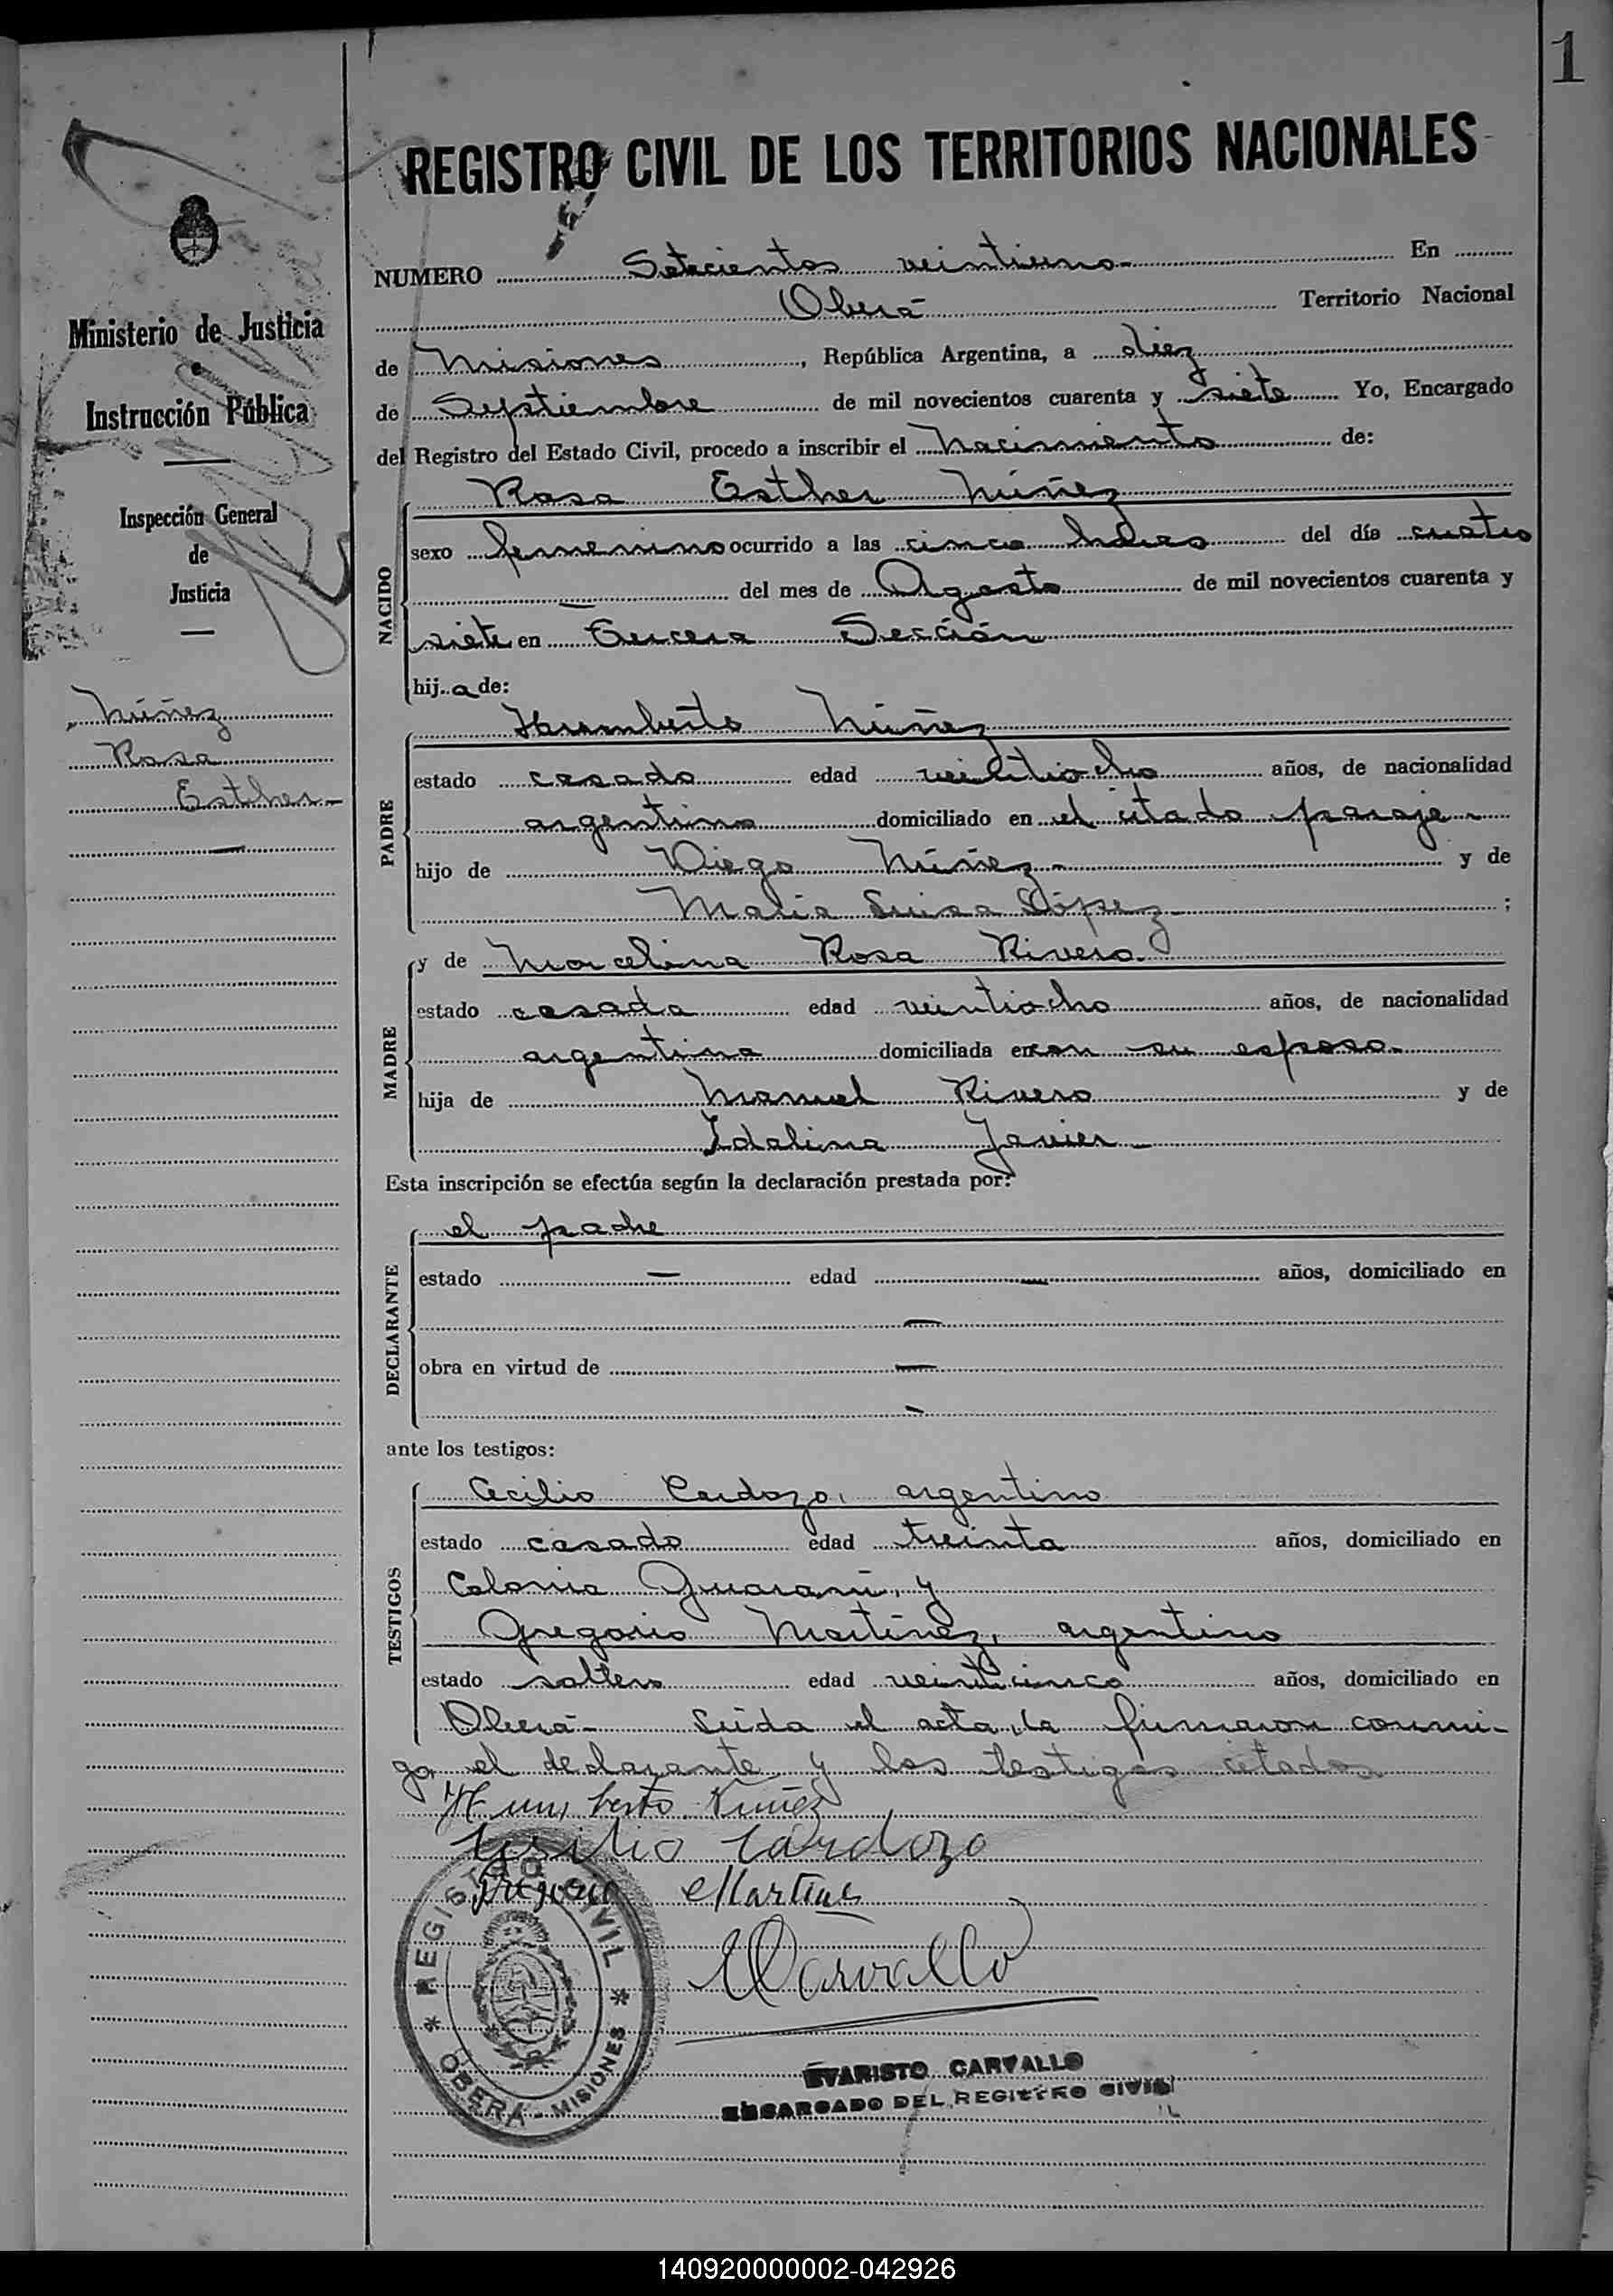 1
REGISTRO CIVIL DE LOS TERRITORIOS NACIONALES
Ministerio de Justicia
e
Instrucción Pública
Inspección General
de
Justicia
Núñez
Rosa
Esther -
NUMERO Setecientos veintiuno - En
Oberá - Territorio Nacional
de Misiones, República Argentina, a diez
de Septiembre de mil novecientos cuarenta y siete Yo, Encargado
del Registro del Estado Civil, procedo a inscribir el Nacimiento de:
NACIDO
Rosa Esther Núñez
sexo femenino ocurrido a las cinco horas del día cuatro
— del mes de Agosto de mil novecientos cuarenta y
siete en Tercera Sección
hija de:
PADRE
Humberto Núñez
estado casado edad veintiocho años, de nacionalidad
argentino domiciliado en el citado paraje -
hijo de Diego Núñez - y de
María Luisa López ;
MADRE
y de Marcelina Rosa Rivero
estado casada edad veintiocho años, de nacionalidad
argentina domiciliada en con su esposo -
hija de Manuel Rivero y de
Idalina Javier -
Esta inscripción se efectúa según la declaración prestada por:
DECLARANTE
el padre
estado — edad — años, domiciliado en
—
obra en virtud de —
—
ante los testigos:
TESTIGOS
Cecilio Cardozo, argentino
estado casado edad treinta años, domiciliado en
Colonia Guaraní, y
Gregorio Martínez, argentino
estado soltero edad veinticinco años, domiciliado en
Oberá - Leída el acta, la firmaron conmi-
go, el declarante y los testigos citados
Humberto Nuñez
Cardozo
Gregorio Martines
Carvallo
REGISTRO CIVIL
OBERÁ - MISIONES
EVARISTO CARVALLO
ENCARGADO DEL REGISTRO CIVIL
140920000002-042926